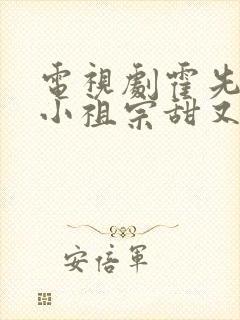 電視劇霍先
小祖宗甜又
安倍軍